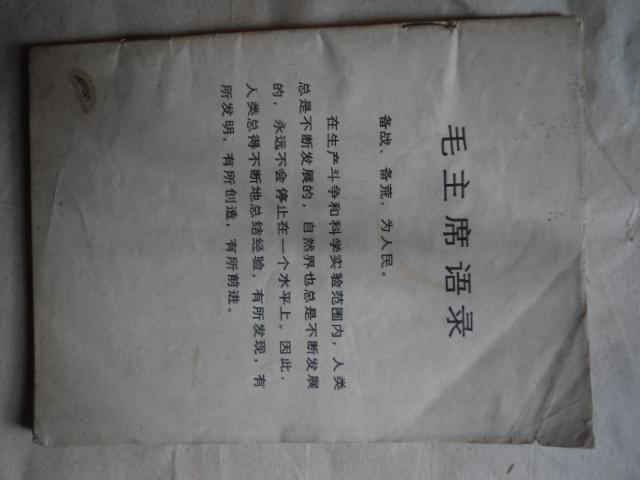 毛主席语录
备战、备荒、为人民。
在生产斗争和科学实验范围内，人类
总是不断发展的，自然界也总是不断发展
的，永远不会停止在一个水平上。因此，
人类总得不断地总结经验，有所发现，有
所发明，有所创造，有所前进。